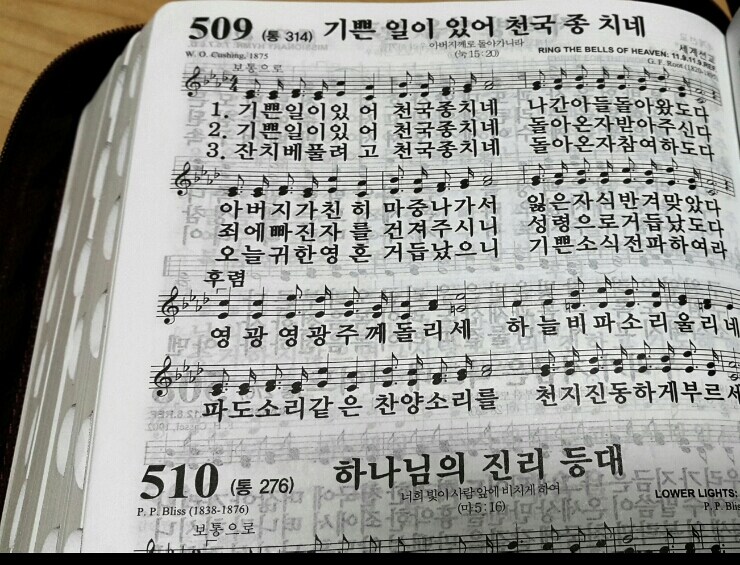 509 (통 314) 기쁜 일이 있어 천국 종 치네
아버지께로 돌아가니라
(눅 15 : 20)
세계선교
RING THE BELLS OF HEAVEN: 11.9.11.9.REF.
W. O. Cushing, 1875
G. F. Root
보통으로
1. 기쁜일이있 어 천국종치네 나간아들돌아왔도다
2. 기쁜일이있 어 천국종치네 돌아온자받아주신다
3. 잔치베풀려 고 천국종치네 돌아온자참여하도다
아버지가친 히 마중나가서 잃은자식반겨맞았다
죄에빠진자 를 건져주시니 성령으로거듭났도다
오늘귀한영 혼 거듭났으니 기쁜소식전파하여라
후렴
영 광 영광주께돌리세 하 늘 비파소리울리네
파도소리같 은 찬양소리를 천지진동하게부르세
510 (통 276) 하나님의 진리 등대
너희 빛이 사람 앞에 비치게 하여
(마 5 : 16)
LOWER LIGHTS:
P. P. Bliss (1838-1876)
P. P. Blis
보통으로